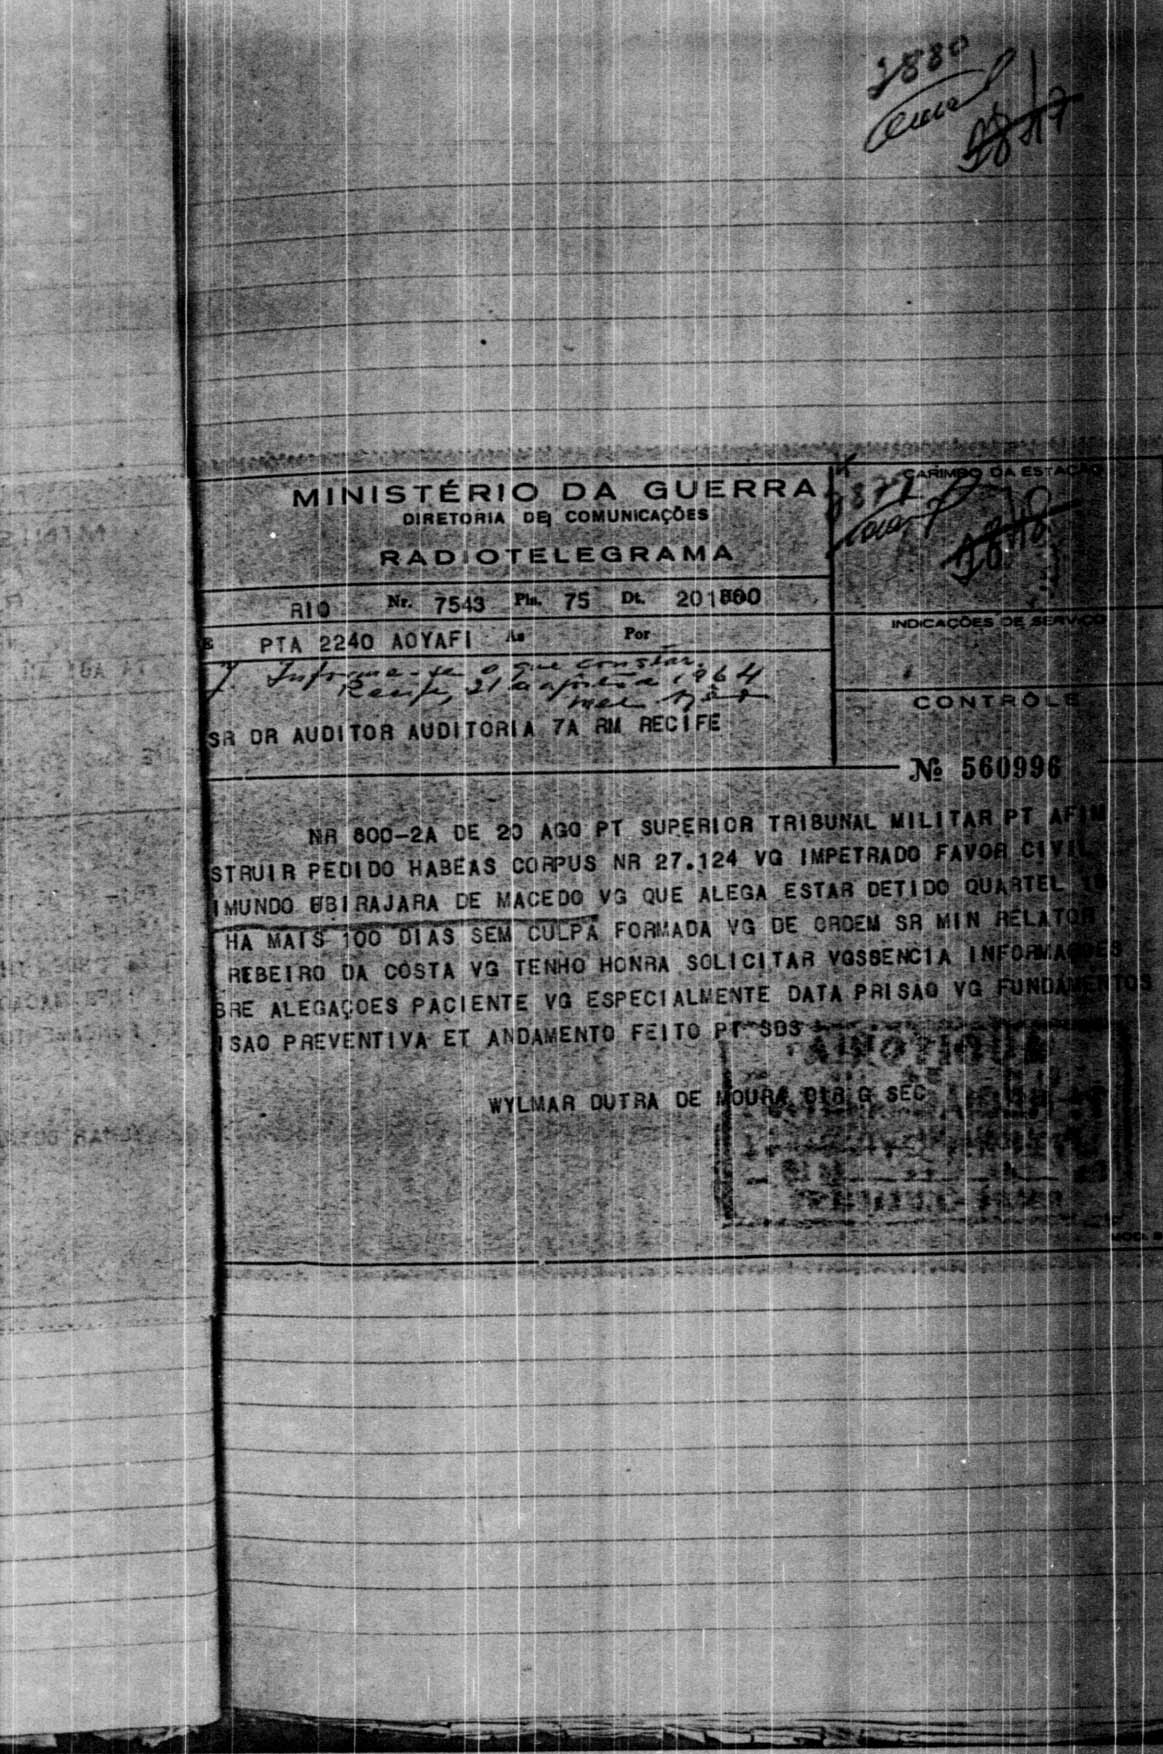 2880
MINISTÉRIO DA GUERRA
DIRETORIA DE COMUNICAÇÕES
RADIOTELEGRAMA
CARIMBO DA ESTAÇÃO
RIO Nr. 7543 Pls. 75 Dt. 201800
PTA 2240 AOYAFI As Por
INDICAÇÕES DE SERVIÇO
J. Informe-se o que constar.
Recife, 21 agosto 1964
CONTRÔLE
SR DR AUDITOR AUDITORIA 7A RM RECIFE
Nº 560996
NR 800-2A DE 20 AGO PT SUPERIOR TRIBUNAL MILITAR PT AFIM
STRUIR PEDIDO HABEAS CORPUS NR 27.124 VG IMPETRADO FAVOR CIVIL
IMUNDO UBIRAJARA DE MACEDO VG QUE ALEGA ESTAR DETIDO QUARTEL
HA MAIS 100 DIAS SEM CULPA FORMADA VG DE ORDEM SR MIN RELATOR
REBEIRO DA COSTA VG TENHO HONRA SOLICITAR VOSSENCIA INFORMAÇOES
BRE ALEGAÇOES PACIENTE VG ESPECIALMENTE DATA PRISAO VG FUNDAMENTOS
ISAO PREVENTIVA ET ANDAMENTO FEITO PT SDS
WYLMAR DUTRA DE MOURA DIR G SEC